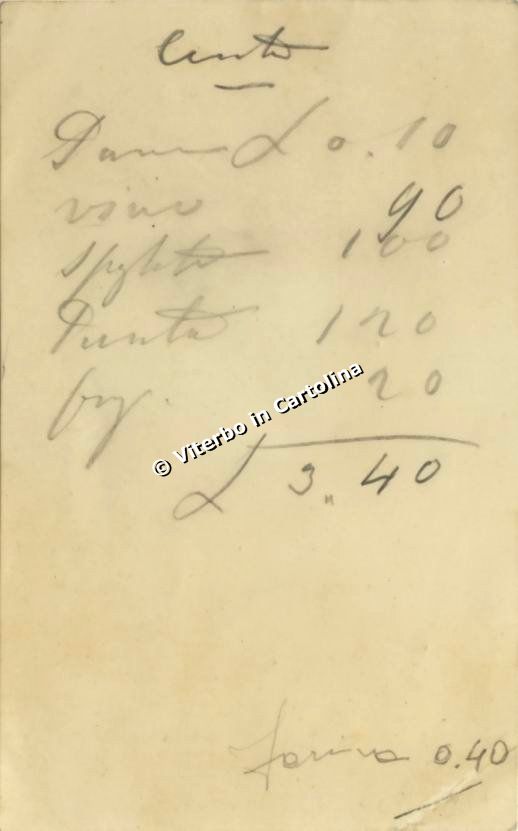 Conto
Pane £ 0.10
vino 90
100
120
20
£ 3,,40
© Viterbo in Cartolina
farina 0.40